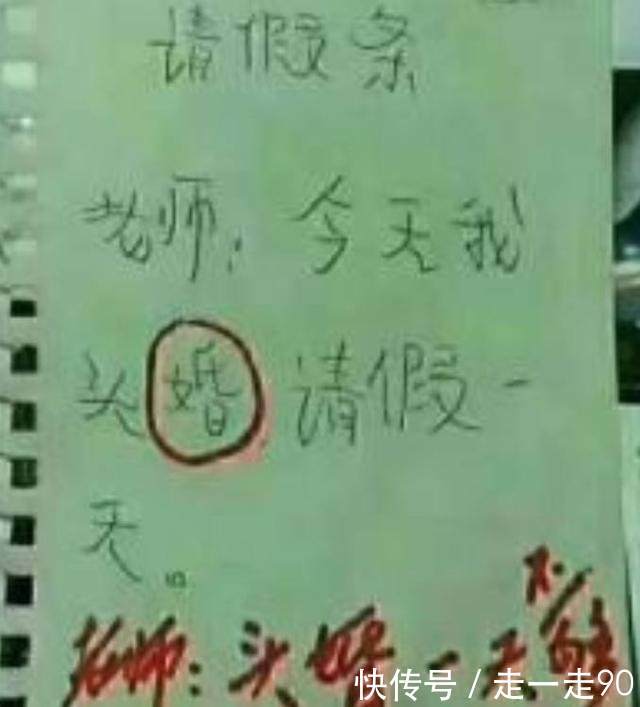 请假条
老师：今天我
头婚请假一
天。
老师：头婚一天不够
快传号 / 走一走90